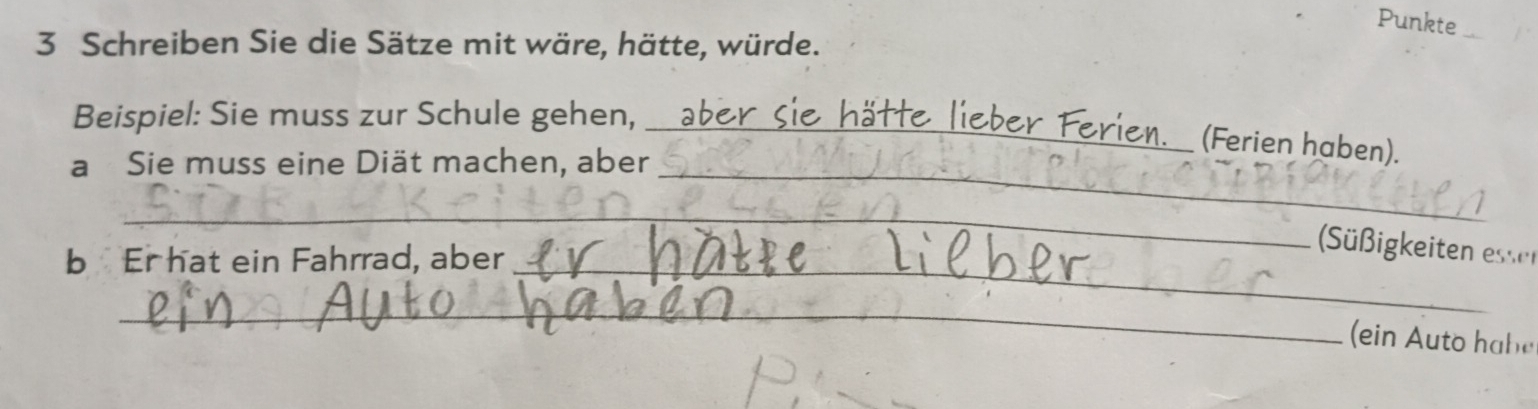 Punkte
3 Schreiben Sie die Sätze mit wäre, hätte, würde.
Beispiel: Sie muss zur Schule gehen, aber sie hätte lieber Ferien. (Ferien haben).
a Sie muss eine Diät machen, aber sie
(Süßigkeiten essen
b Er hat ein Fahrrad, aber er hätte lieber
ein Auto haben
(ein Auto habe